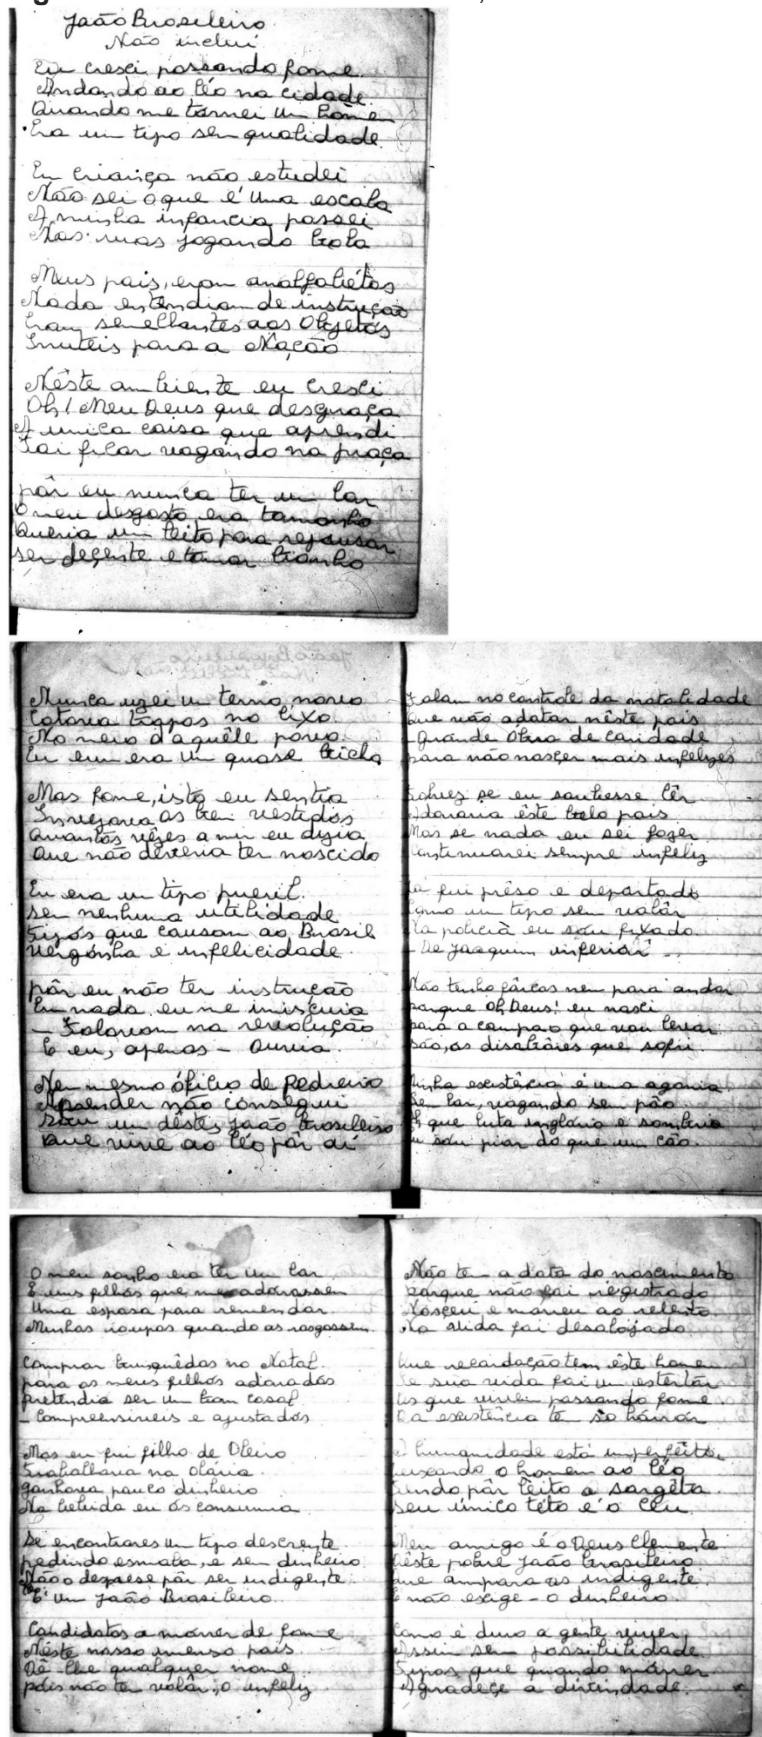 João Brasileiro
Não inclui
Eu cresci passando fome
Andando ao léo na cidade
Quando me tornei um hômem
Era um tipo sem qualidade
Eu criança não estudei
Não sei o que é uma escola
A minha infancia passei
Nas ruas jogando bola
Meus pais, eram analfabétos
Nada entendiam de instrução
Eram semelhantes aos Objetos
Inuteis para a Nação
Nêste ambiente eu cresci
Oh! Meu Deus que desgraça
A unica coisa que aprendi
Foi ficar vagando na praça
pôr eu nunca ter um lar
O meu desgosto era tamanho
Queria um leito para repousar
ser deçente e tomar banho
Nunca usei um terno novo
Catava trapos no lixo
No meio daquêle povo
Eu era um quase bicho
Mas fome, isto eu sentia
Invejava os bem vestidos
Quantas vêzes a mim eu dizia
Que não deveria ter nascido
Eu era um tipo pueril
sem nenhuma utilidade
Tipos que causam ao Brasil
Vergônha e infelicidade
pôr eu não ter instrução
Em nada eu me imiscuia
– Falavam na revolução
E eu, apenas – Ouvia
Nem mesmo ófício de Pedreiro
Aprender não consegui
Sou um dêstes João brasileiro
Que vive ao léo pôr aí
Falam no contrôle da natalidade
Que vão adotar nêste país
Grande Obra de caridade
para não nasçer mais infelizes
Talvez se eu soubesse lêr
Adoraria êste belo país
Mas se nada eu sei fazer
Continuarei sempre infeliz
Já fui prêso e deportado
Como um tipo sem valôr
Na policia eu sou fixado
– De Joaquim inferiôr –
Não tenho fôrças nem para andar
porque Oh Deus! eu nasci
para a campa que vou levar
são, os dissabôres que sofri
Minha existência é uma agonia
Sem lar, vagando sem pão
Oh que luta inglória e sombria
Eu sou pior do que um cão.
O meu sonho era ter um lar
E uns filhos que me adorassem
Uma esposa para remendar
Minhas roupas quando as rasgassem
Comprar brinquêdos no Natal
para os meus filhos adorados
pretendia ser um bom casal
– Compreensiveis e ajustados
Mas eu fui filho de Oleiro
Trabalhava na Olária
ganhava pouco dinheiro
Na bebida eu ós consumia
Se encontrares um tipo descrente
pedindo esmola, e sem dinheiro
Não o despreze pôr ser indigente
É um João Brasileiro
Candidatos a morrer de fome
Nêste nosso imenso país
Dê-lhe qualquer nome
pois não tem valôr, o infeliz
Não tem a data do nascimento
porque não foi registrado
Nasçeu e morreu ao relento
Na vida foi desalojado
Que recordação tem êste homem
Se sua vida foi um estertôr
Os que vivem passando fome
E a existência tem só hôrrôr
A humanidade está imperfeita
deixando o homem ao léo
tendo pôr leito a sargêta
seu único teto é o Ceu
Meu amigo é o Deus Clemente
Dêste pobre João brasileiro
que ampara os indigente
E não exige – o dinheiro
Como é duro a gente viver
Assim sem possibilidade
Tipos que quando môrrer
Agradeçe a divindade